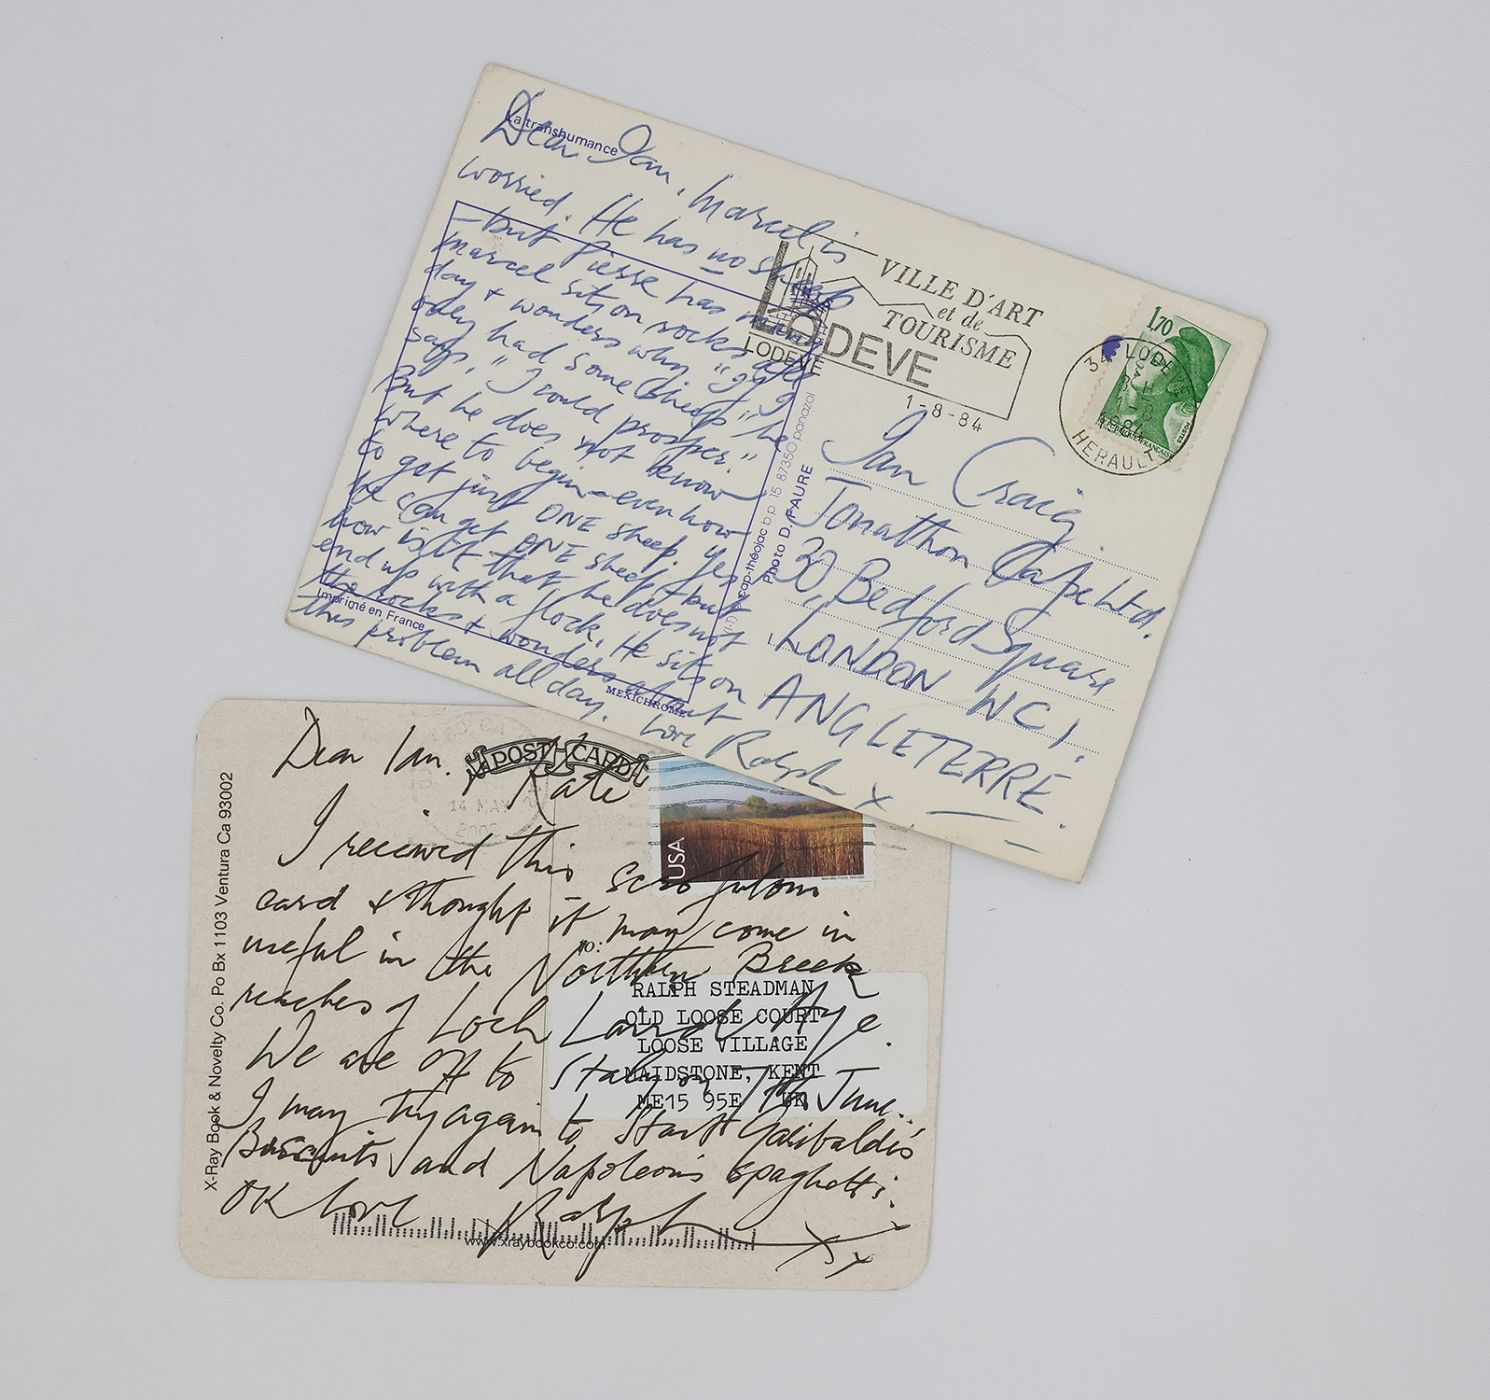 La transhumance
Dear Ian, Marcel is
worried. He has no sheep
- but Pierre has many
Marcel sits on rocks all
day & wonders why "If I
only had some sheep" he
says, "I could prosper."
But he does not know
where to begin - even how
to get just ONE sheep. Yes
he can get ONE sheep - but
how is it that he does not
end up with a flock. He sits on
the rocks & wonders about
this problem all day.
Love Ralph x
Imprimé en France
MEXICHROME
cap-théojac b.p. 15 87350 panazol
Photo D. FAURE
VILLE D'ART
et de
TOURISME
LODEVE
LODEVE
1-8-84
1,70
34 LODEVE
HERAULT
Ian Craig
Jonathon Cape Ltd.
30, Bedford Square
LONDON WC1,
ANGLETERRE.
POST CARD
14 MAY
USA
X-Ray Book & Novelty Co. Po Bx 1103 Ventura Ca 93002
Dear Ian.
& Kate
I received this
card & thought it may come in
useful in the Northern
reaches of Loch
We are off to Italy on 7th June.
I may try again to start Garibaldi's
Biscuits and Napoleon's spaghetti.
OK love Ralph xx
TO:
RALPH STEADMAN
OLD LOOSE COURT
LOOSE VILLAGE
MAIDSTONE, KENT
ME15 95E UK
www.xraybookco.com